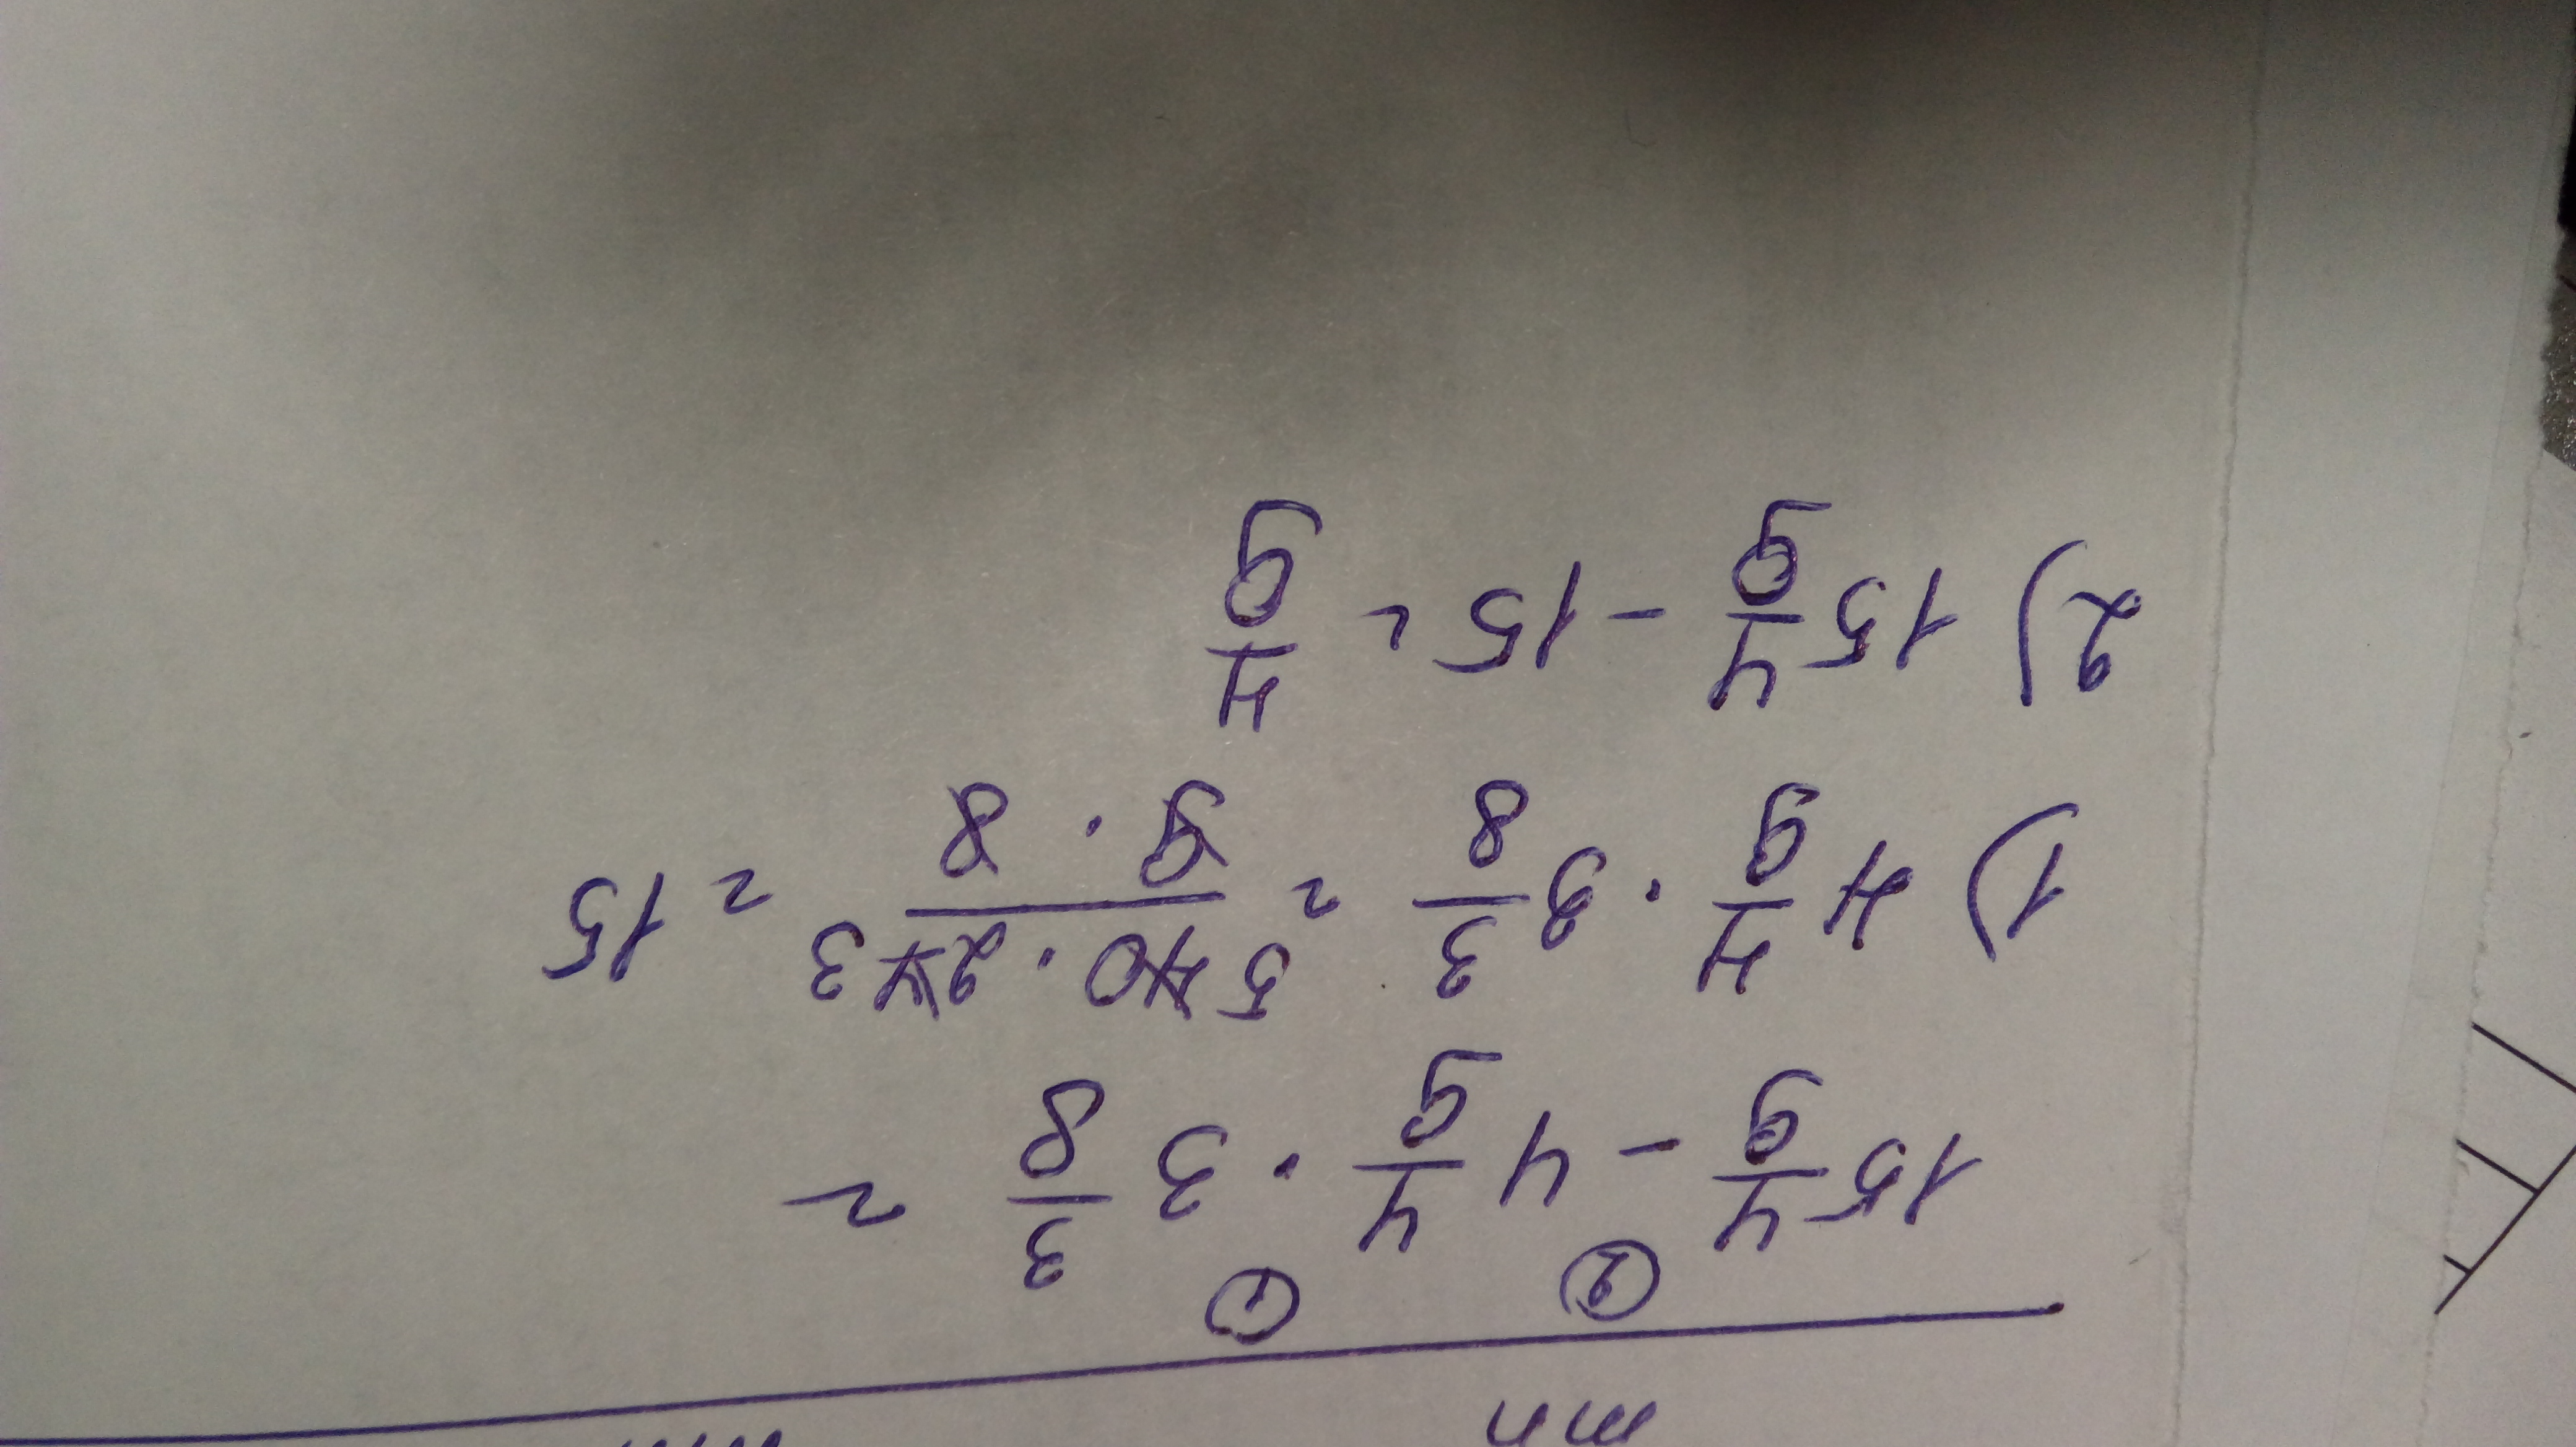 mn
② ①
15 4/9 - 4 4/9 · 3 3/8 =
1) 4 4/9 · 3 3/8 = 5 40 · 24 3 / 9 · 8 = 15
2) 15 4/9 - 15 = 4/9